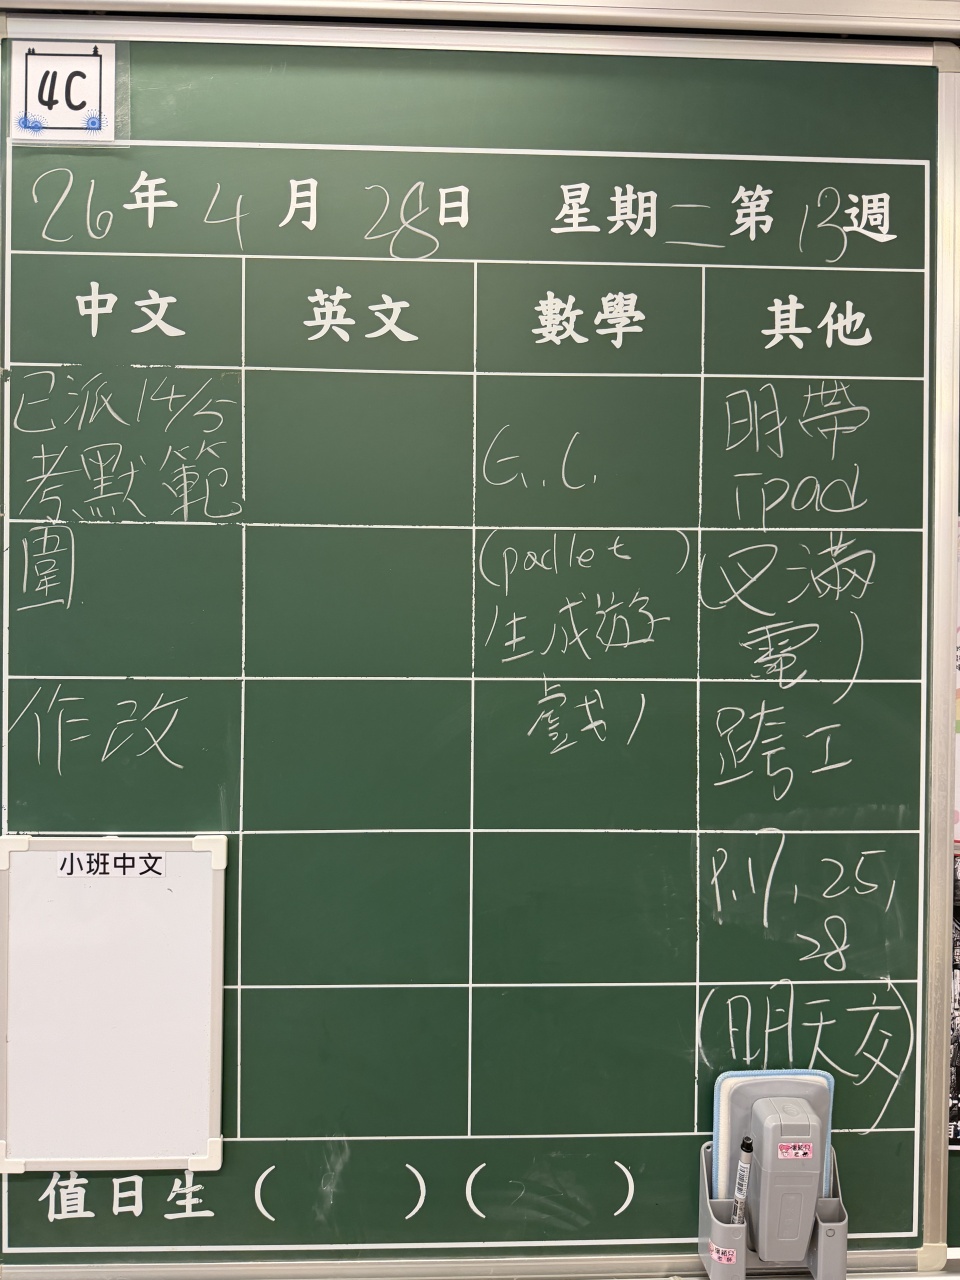 4C
26年4月28日 星期二第13週
中文 英文 數學 其他
已派14/5
考默範
圍
作改
G.C.
(padlet)
生成遊
戲)
明帶
ipad
(叉滿
電)
跨工
P.17, 25,
28
(明天交)
小班中文
值日生( )( )